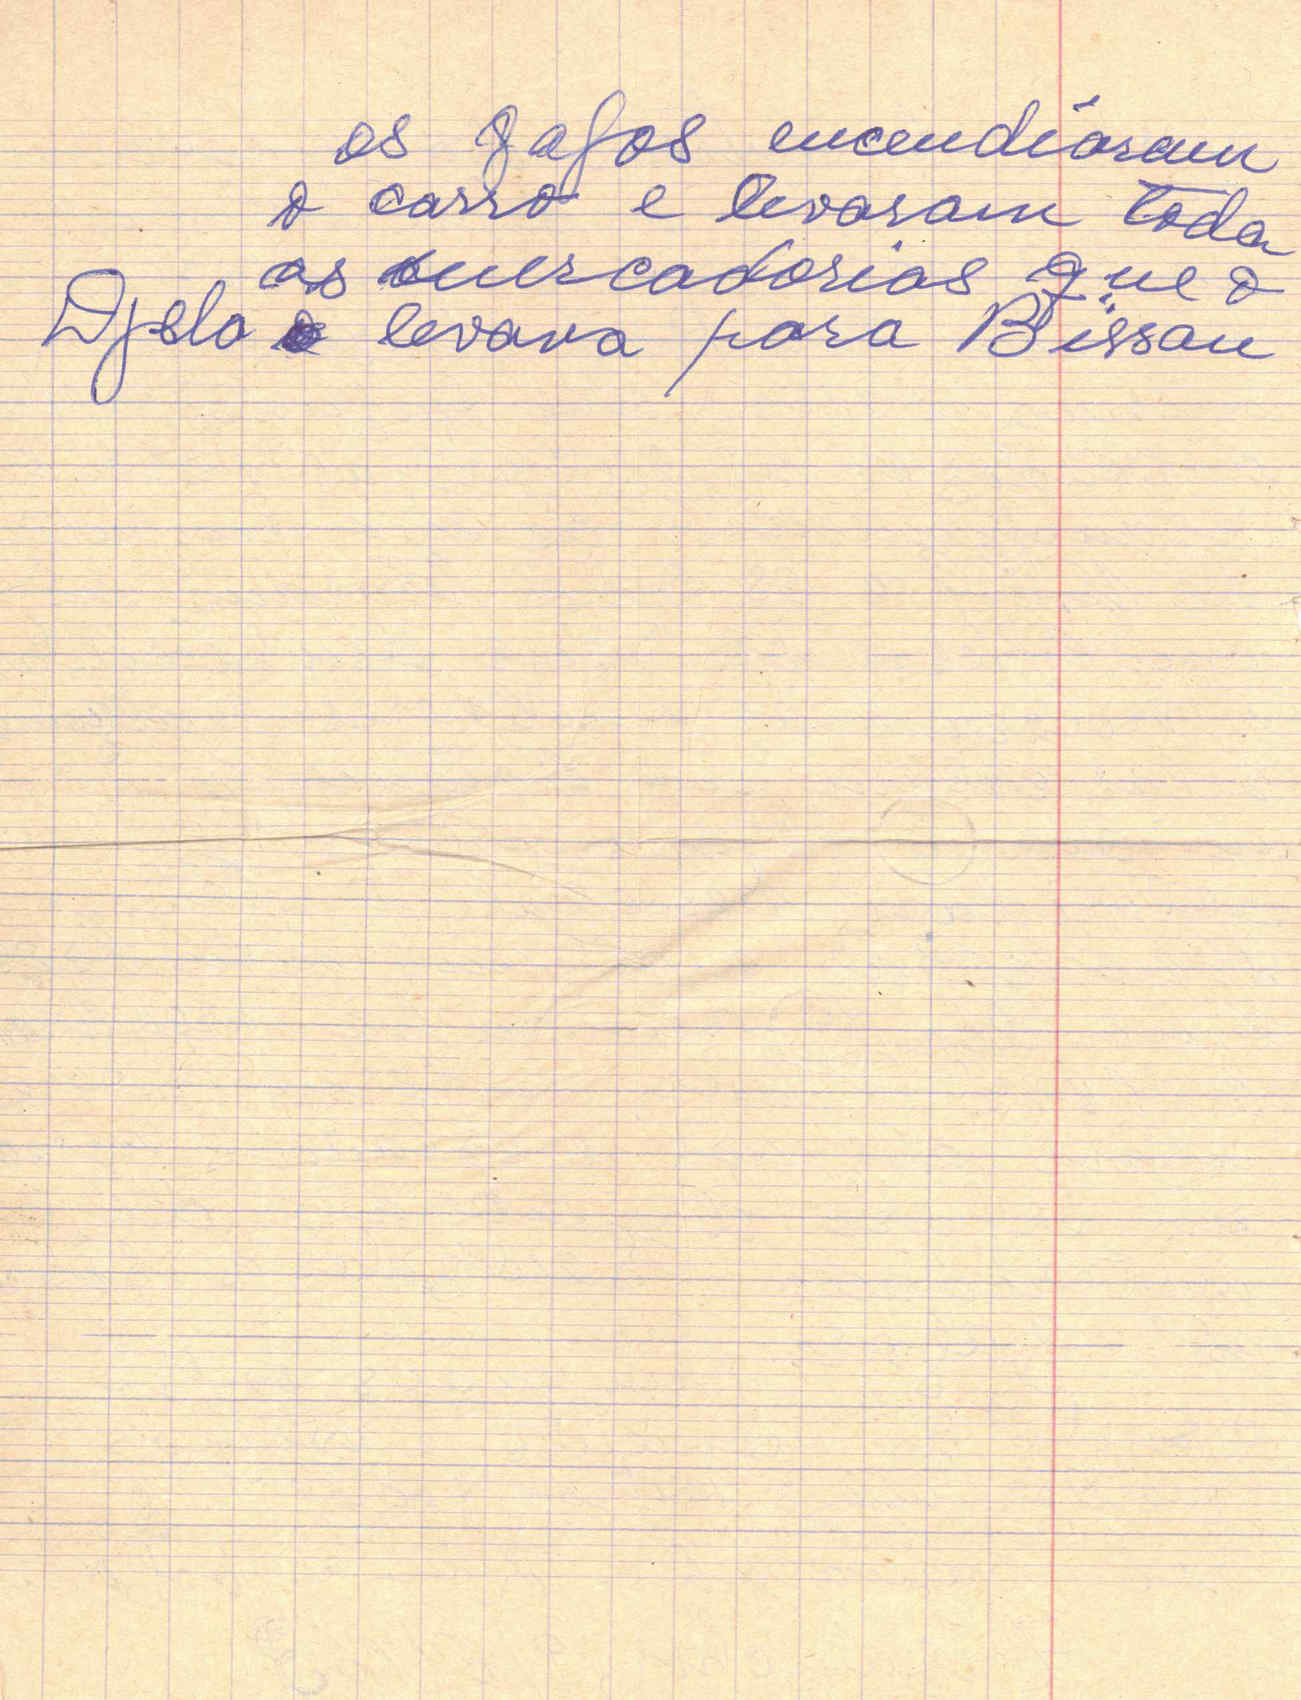 os gajos encendiaram
o carro e levaram toda
as mercadorias que o
Djalo levava para Bissau